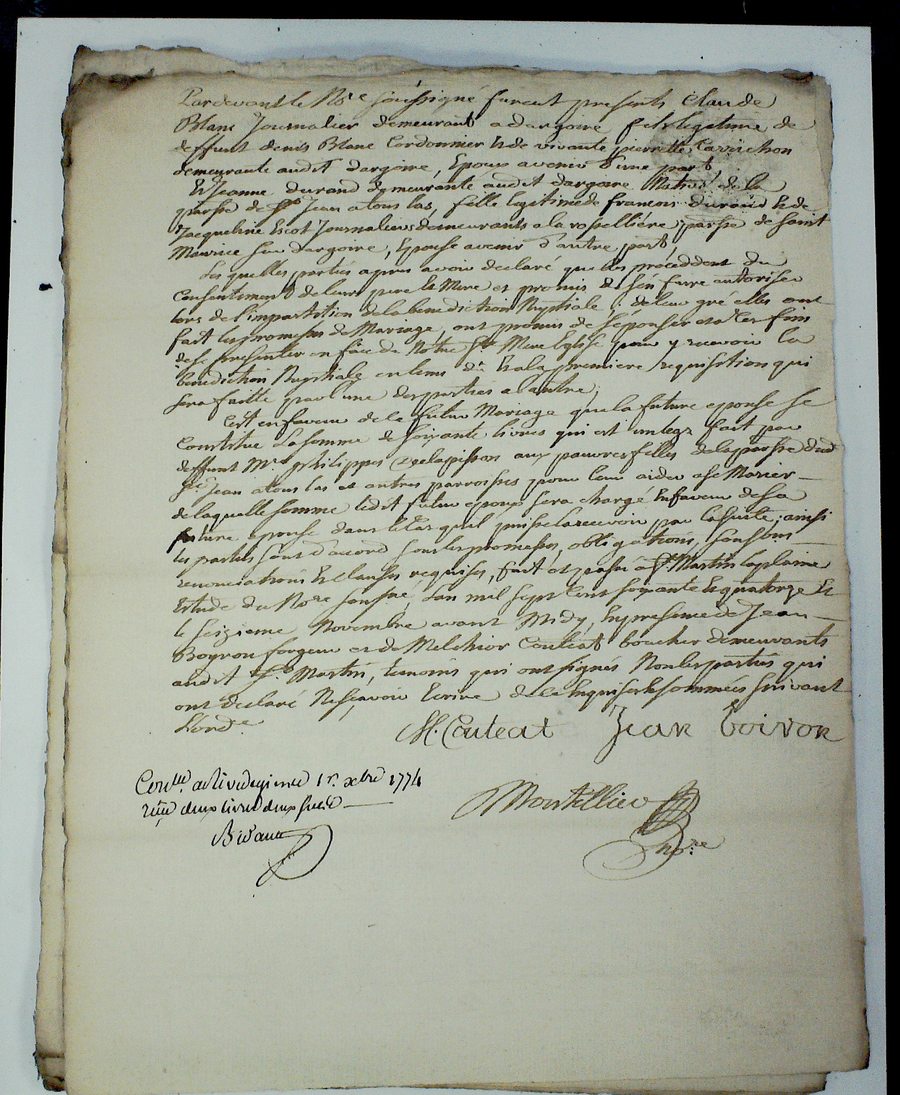 Pardevant le No.re soussigné furent presents Claude
Blanc Journalier demeurant a dargoire fils legitime de
deffunt denis Blanc Cordonnier & de vivante pierrette
demeurante audit dargoire, Epoux avenir d'une part
Et Jeanne durand demeurante audit dargoire Native de la
parsse de St Jean atouslas fille legitime de francois durand & de
Jacqueline Escot Journaliers demeurants a la rossellière parsse de saint
Maurice sur dargoire, Epouse avenir d'autre part
Les quelles parties apres avoir declaré qu'elles procèddent du
Consentement de leurs pere & Mere et promis de s'en faire autoriser
lors de l'impartition de la benediction Nuptiale, de leur gré elles ont
fait les promesses de Mariage, ont promis de s'épouser et a ces fins
de se presenter en face de Notre Ste Mere Eglise pour y recevoir la
benediction Nuptiale en tems dû & a la premiere requisition qui
sera faitte par l'une des parties a l'autre;
C'est en faveur de ce futur Mariage que la future epouse se
Constitue la somme de soixante livres qui est un legs fait par
deffunt Mr philippes aux pauvres filles de la parsse dud
St jean atouslas et autres parroisses pour leur aider a se Marier
de laquelle somme ledit futur epoux sera chargé en faveur de sa
future epouse dans le cas qu'il puisse la recevoir par la suitte; ainsi
les parties sont d'accord sous les promesses, obligations,
renonciations & clauses requises, fait et passé à St Martin laplaine
Estude du No.re soussné, l'an mil sept cent soixante & quatorze &
le seizieme Novembre avant Midy, En presence de Jean
Boyron forgeur et de Melchior Couteat boucher demeurants
audit St Martin, temoins qui ont signés Non les parties qui
ont declaré Ne scavoir Ecrire de ce Enquises & sommées suivant
l'ord.e
M. Couteat Jean boiron
1r xbre 1774
deux livres deux sols
Montellier
no.re